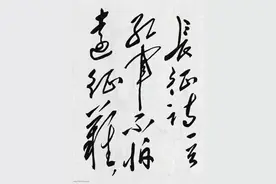 長征詩一首
紅軍不怕
遠征難，